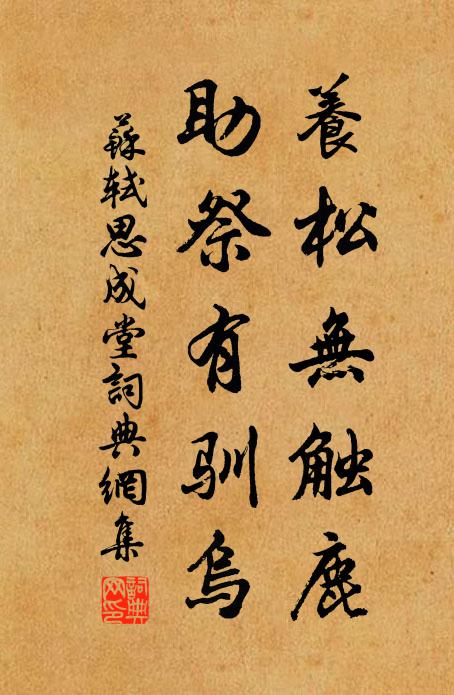 養松無触鹿
助祭有驯烏
蘇軾思成堂詞典網集
詞典网印